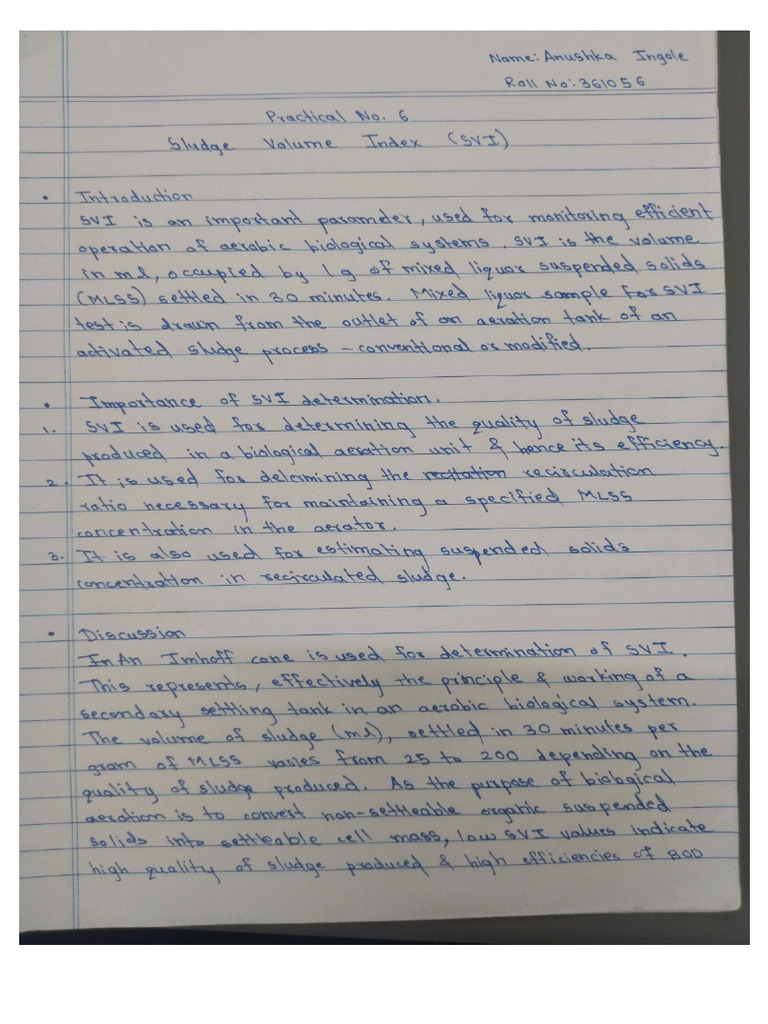 Name: Anushka Ingole
Roll No: 361056
Practical No. 6
Sludge Volume Index (SVI)
• Introduction
SVI is an important parameter, used for monitoring efficient
operation of aerobic biological systems. SVI is the volume
in ml, occupied by 1g of mixed liquor suspended solids
(MLSS) settled in 30 minutes. Mixed liquor sample for SVI
test is drawn from the outlet of an aeration tank of an
activated sludge process - conventional or modified.
• Importance of SVI determination.
1. SVI is used for determining the quality of sludge
produced in a biological aeration unit & hence its efficiency.
2. It is used for detcrmining the recitation recirculation
ratio necessary for maintaining a specified MLSS
concentration in the aerator.
3. It is also used for estimating suspended solids
concentration in recirculated sludge.
• Discussion
In An Imhoff cone is used for determination of SVI.
This represents, effectively the principle & working of a
secondary settling tank in an aerobic biological system.
The volume of sludge (ml), settled in 30 minutes per
gram of MLSS varies from 25 to 200 depending on the
quality of sludge produced. As the purpose of biological
aeration is to convert non-settleable organic suspended
solids into settleable cell mass, low SVI values indicate
high quality of sludge produced & high efficiencies of BOD